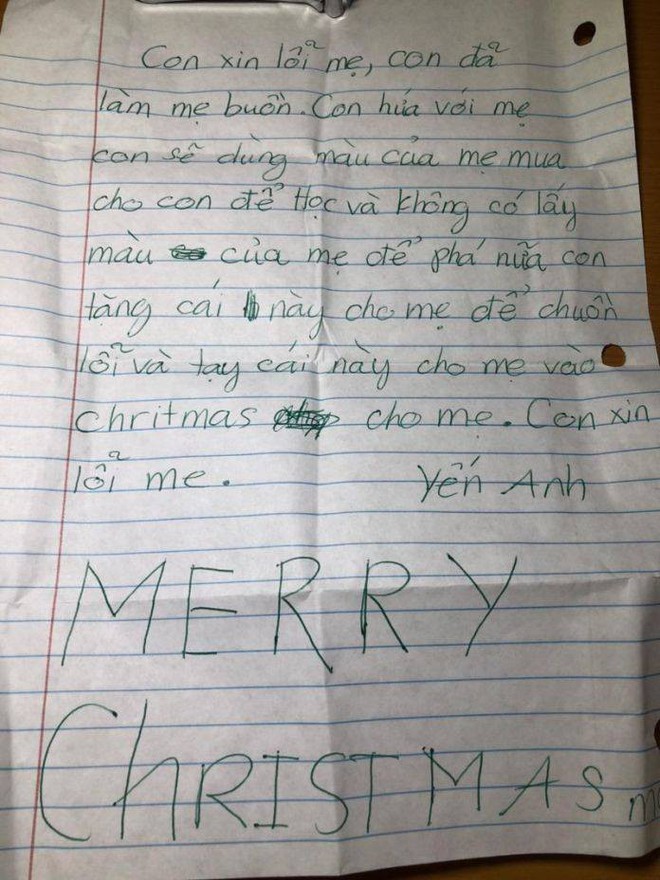 Con xin lỗi mẹ, con đã
làm mẹ buồn. Con hứa với mẹ
con sẽ dùng màu của mẹ mua
cho con để Học và không có lấy
màu của mẹ để phá nữa con
tặng cái này cho mẹ để chuồn
lỗi và tạy cái này cho mẹ vào
chritmas cho mẹ. Con xin
lỗi mẹ. Yến Anh
MERRY
ChRISTMAS